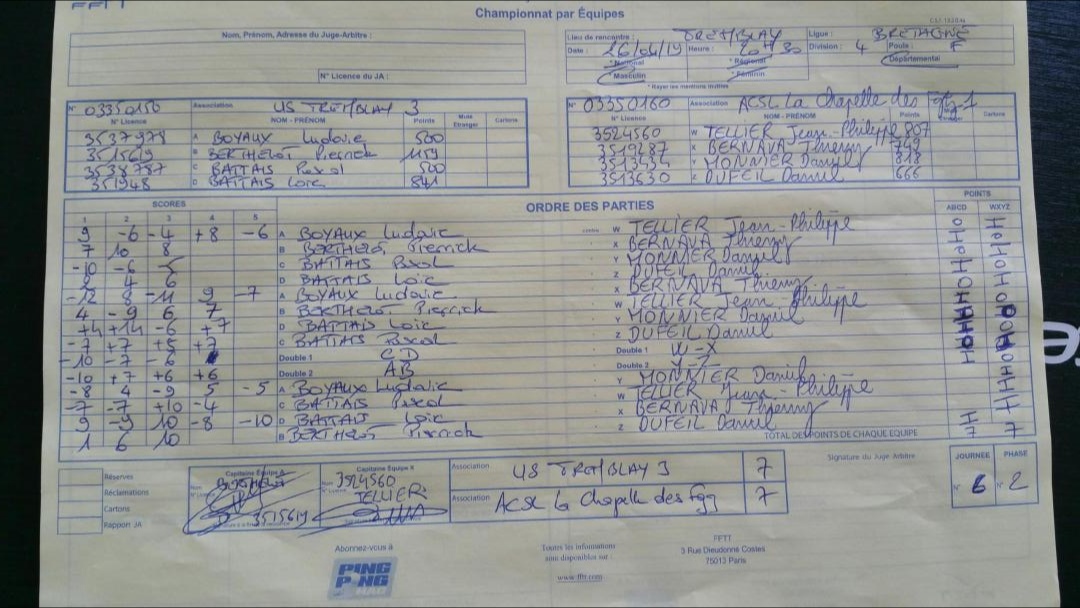 FFTT
Championnat par Équipes
Nom, Prénom, Adresse du Juge-Arbitre :
N° Licence du JA :
Lieu de rencontre : TREMBLAY Ligue : BRETAGNE
Date : 26/04/19 Heure : 20H30 Division : 4 Poule : F
* National * Régional Départemental
* Masculin * Féminin
* Rayer les mentions inutiles
N° 03350150 Association US TREMBLAY 3
N° Licence NOM - PRÉNOM Points Mute Etranger Cartons
3537978 A BOYAUX Ludovic 500
3515619 B BERTHELOT Pierrick 1159
3538787 C BATTAIS Pascal 500
351948 D BATTAIS Loic 841
N° 03350160 Association ACSL La Chapelle des Fgtz 1
N° Licence NOM - PRÉNOM Points Cartons
3524560 W TELLIER Jean-Philippe 807
3519287 X BERNAVA Thierry 749
3513434 Y MONNIER Daniel 818
3513630 Z DUFEIL Daniel 666
SCORES ORDRE DES PARTIES POINTS
1 2 3 4 5 ABCD WXYZ
9 -6 -4 +8 -6 A BOYAUX Ludovic W TELLIER Jean-Philippe
7 10 8 B BERTHELOT Pierrick X BERNAVA Thierry
-10 -6 -5 C BATTAIS Pascal Y MONNIER Daniel
4 6 D BATTAIS Loic Z DUFEIL Daniel
-12 8 -11 9 -7 A BOYAUX Ludovic X BERNAVA Thierry
4 -9 6 7 B BERTHELOT Pierrick W TELLIER Jean-Philippe
+4 +14 -6 +7 D BATTAIS Loic Y MONNIER Daniel
-7 +7 +5 +7 C BATTAIS Pascal Z DUFEIL Daniel
-10 -7 -6 Double 1 CD Double 1 W = X
-10 +7 +6 +6 Double 2 AB Double 2 Y = Z
-8 4 -9 5 -5 A BOYAUX Ludovic Y MONNIER Daniel
-7 -7 +10 -4 C BATTAIS Pascal W TELLIER Jean-Philippe
9 -9 10 -8 -10 D BATTAIS Loic X BERNAVA Thierry
1 6 10 B BERTHELOT Pierrick Z DUFEIL Daniel
TOTAL DES POINTS DE CHAQUE EQUIPE 7 7
Réserves
Réclamations
Cartons
Rapport JA
Capitaine Équipe A
BERTHELOT
3515619
Capitaine Équipe X
3524560
TELLIER
Association US TREMBLAY 3 7
Association ACSL La Chapelle des Fgtz 7
Signature du Juge Arbitre
JOURNÉE PHASE
N° 6 N° 2
Abonnez-vous à
PING PONG MAG
Toutes les informations
sont disponibles sur :
www.fftt.com
FFTT
3 Rue Dieudonné Costes
75013 Paris